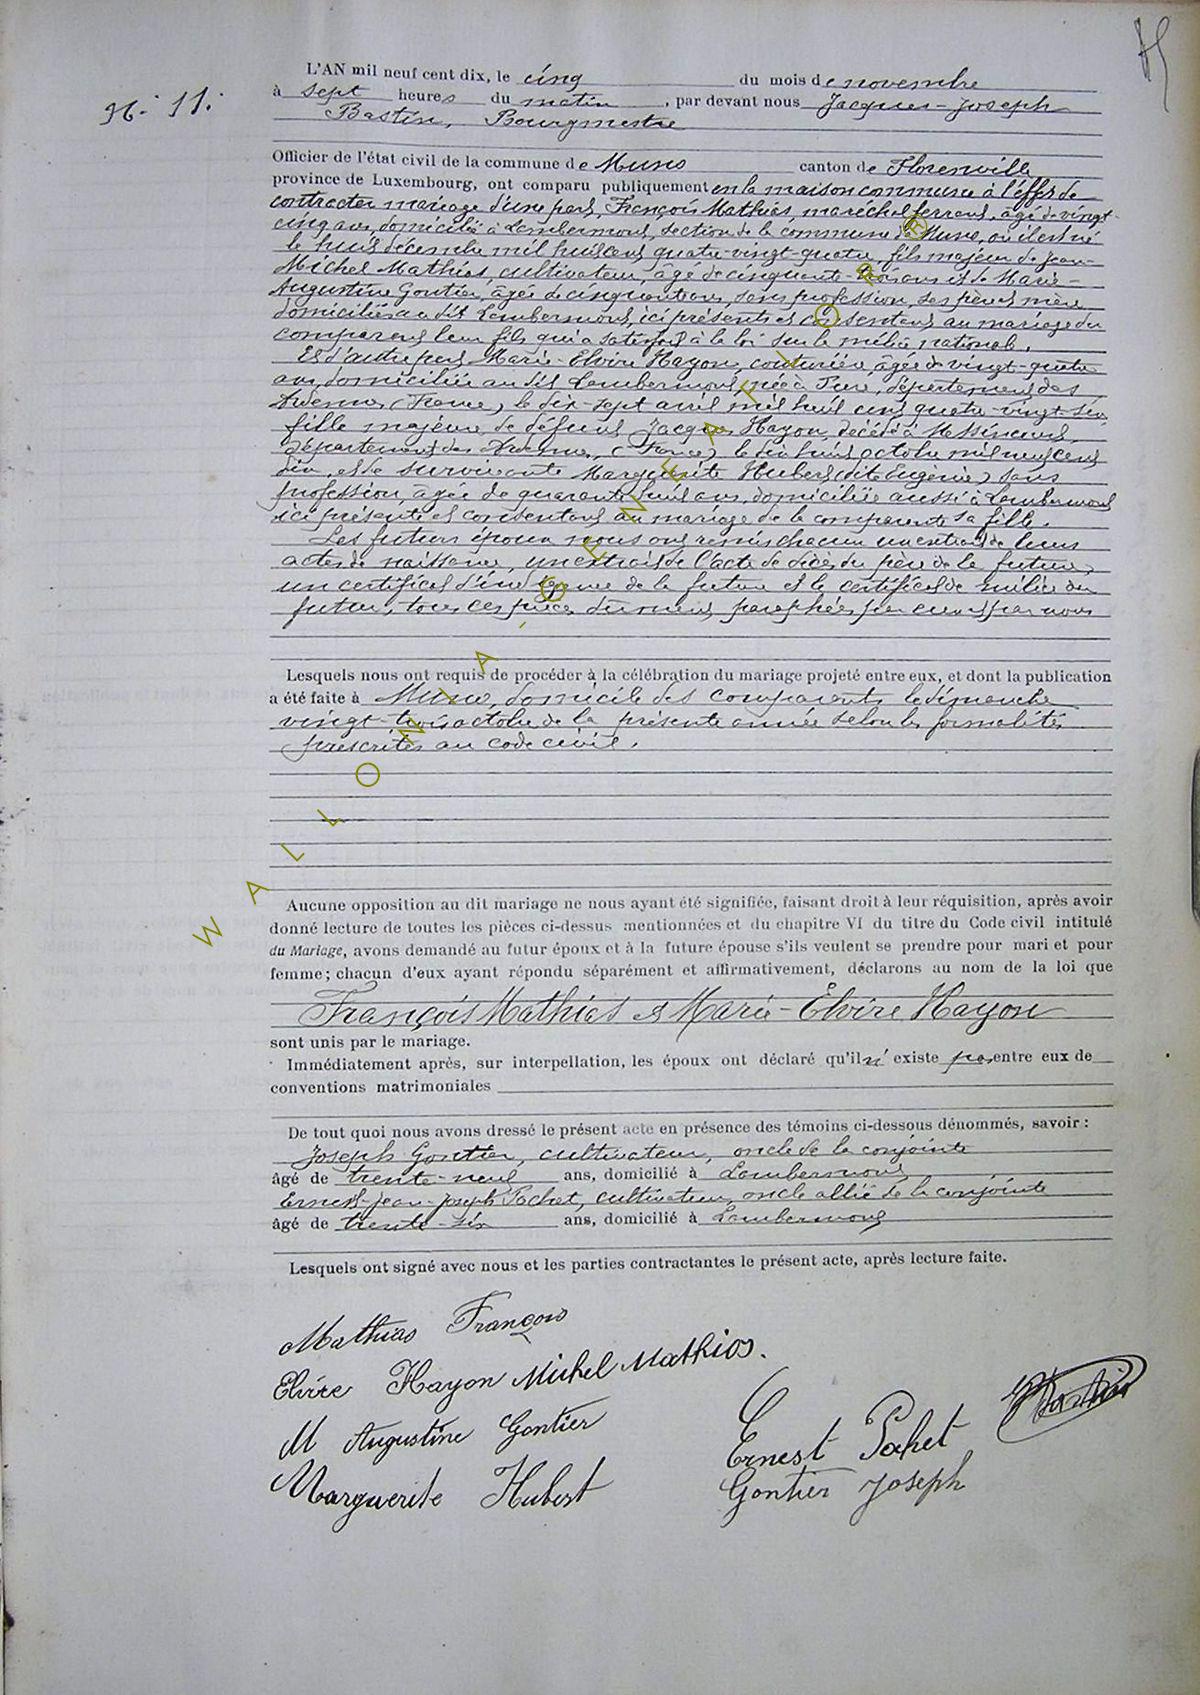 N. 11.
L'AN mil neuf cent dix, le cinq du mois de novembre
à sept heures du matin, par devant nous Jacques-Joseph
Bastin, Bourgmestre
Officier de l'état civil de la commune de Muno canton de Florenville
province de Luxembourg, ont comparu publiquement en la maison commune à l'effet de
contracter mariage d'une part, François Mathias, maréchal ferrant, âgé de vingt-
cinq ans, domicilié à Lambermont, section de la commune de Muno, où il est né
le huit décembre mil huit cent quatre-vingt-quatre, fils majeur de Jean-
Michel Mathias, cultivateur, âgé de cinquante-trois ans et de Marie-
Augustine Gontier, âgée de cinquante ans, sans profession, ses père et mère
domiciliés au dit Lambermont, ici présents et consentant au mariage du
comparant leur fils qui a satisfait à la loi sur la milice nationale.
Et d'autre part Marie-Elvire Hayon, couturière âgée de vingt-quatre
ans, domiciliée au dit Lambermont, née à Pure, département des
Ardennes (France) le dix-sept avril mil huit cent quatre-vingt-six
fille majeure de défunt Jacques Hayon, décédé à Messincourt,
département des Ardennes, (France) le dix huit octobre mil neuf cent
dix, et de survivante Marguerite Hubert (dite Eugénie) sans
profession, âgée de quarante huit ans, domiciliée aussi à Lambermont
ici présente et consentant au mariage de la comparente sa fille.
Les futurs époux nous ont remis chacun un extrait de leurs
actes de naissance, un extrait de l'acte de décès du père de la future,
un certificat d'indigence de la future et le certificat de milice du
futur, tous ces pièces dûment paraphées par eux et par nous
Lesquels nous ont requis de procéder à la célébration du mariage projeté entre eux, et dont la publication
a été faite à Muno domicile des comparants le dimanche
vingt-trois octobre de la présente année selon les formalités
prescrites au code civil.
Aucune opposition au dit mariage ne nous ayant été signifiée, faisant droit à leur réquisition, après avoir
donné lecture de toutes les pièces ci-dessus mentionnées et du chapitre VI du titre du Code civil intitulé
du Mariage, avons demandé au futur époux et à la future épouse s'ils veulent se prendre pour mari et pour
femme; chacun d'eux ayant répondu séparément et affirmativement, déclarons au nom de la loi que
François Mathias et Marie-Elvire Hayon
sont unis par le mariage.
Immédiatement après, sur interpellation, les époux ont déclaré qu'il n'existe pas entre eux de
conventions matrimoniales
De tout quoi nous avons dressé le présent acte en présence des témoins ci-dessous dénommés, savoir :
Joseph Gontier, cultivateur, oncle de la conjointe
âgé de trente-neuf ans, domicilié à Lambermont
Ernest-Jean-Joseph Pochet, cultivateur, oncle allié de la conjointe
âgé de trente-six ans, domicilié à Lambermont
Lesquels ont signé avec nous et les parties contractantes le présent acte, après lecture faite.
Mathias François
Elvire Hayon Michel Mathias.
M Augustine Gontier
Marguerite Hubert
Ernest Pochet
Gontier Joseph
Bastin
WALLONIA-GENEAFILOPRE